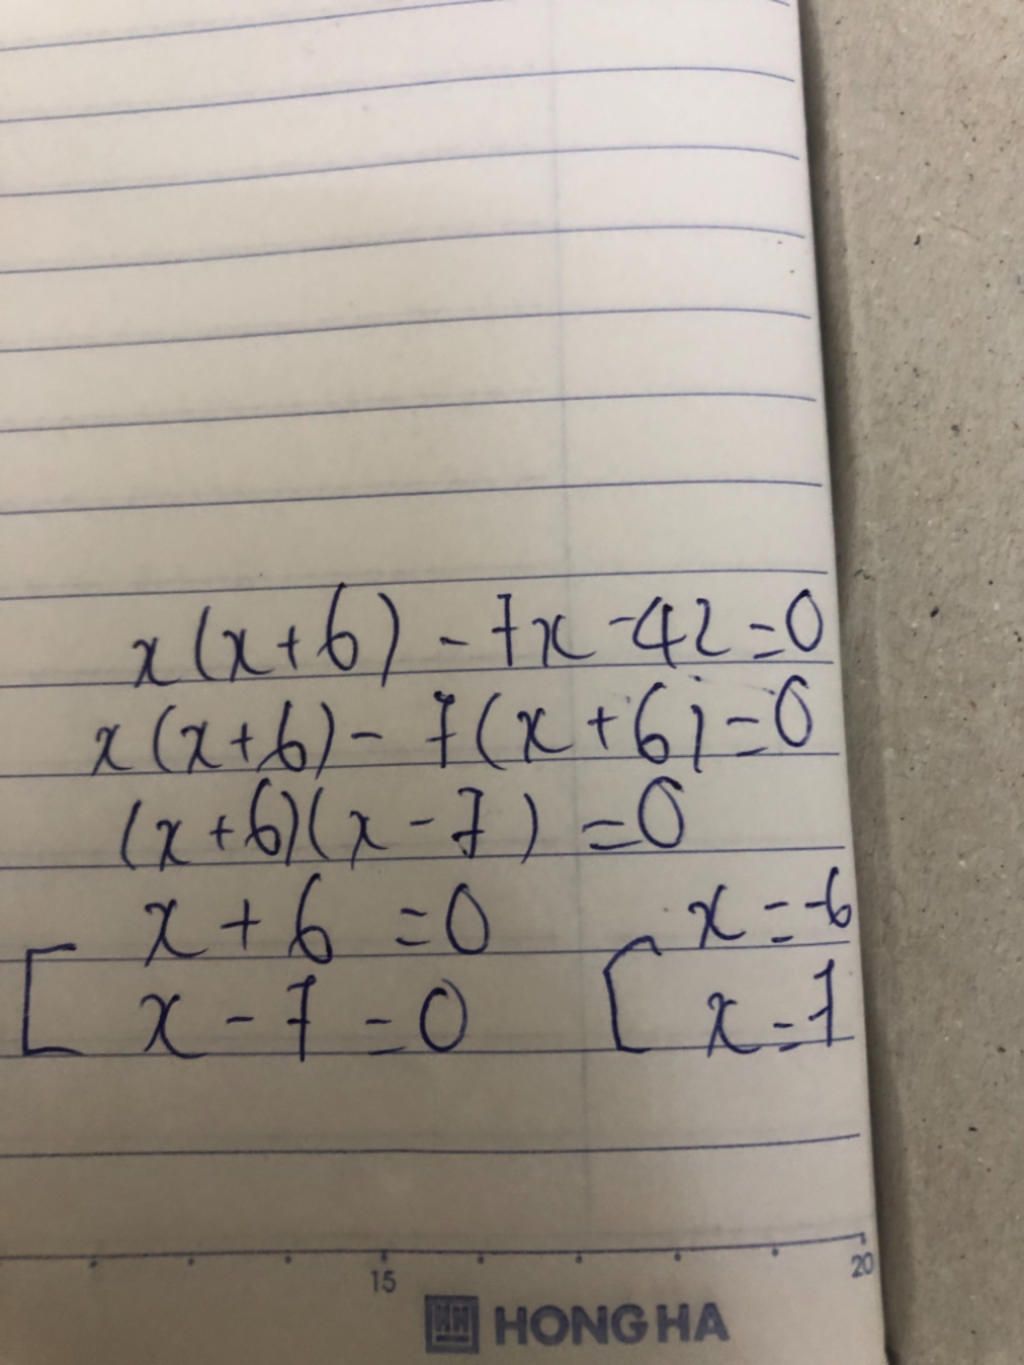 x(x+6) - 7x - 42 = 0
x(x+6) - 7(x+6) = 0
(x+6)(x-7) = 0
x + 6 = 0 x = -6
x - 7 = 0 x = 7
15 20
HONG HA